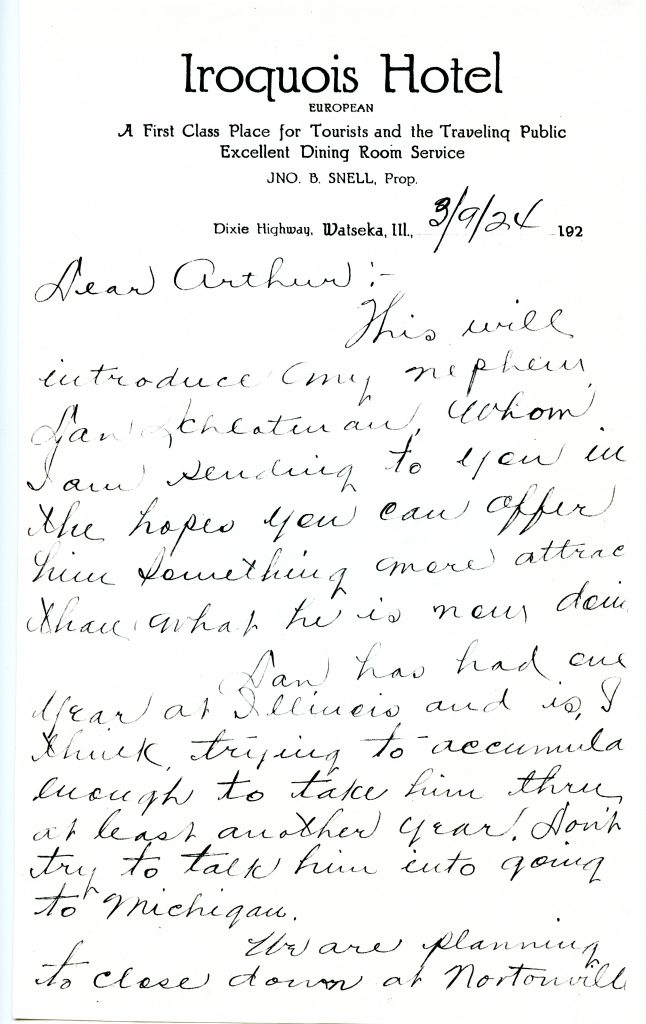 Iroquois Hotel
EUROPEAN
A First Class Place for Tourists and the Traveling Public
Excellent Dining Room Service
JNO. B. SNELL, Prop.
Dixie Highway, Watseka, Ill., 3/9/24 192
Dear Arthur:-
This will
introduce my nephew,
Dan Schlatman, whom
I am sending to you in
the hopes you can offer
him something more attrac
than what he is now doin
Dan has had one
year at Illinois and is, I
think, trying to accumula
enough to take him thru
at least another year. Don't
try to talk him into going
to Michigan.
We are planning
to close down at Nortonvill